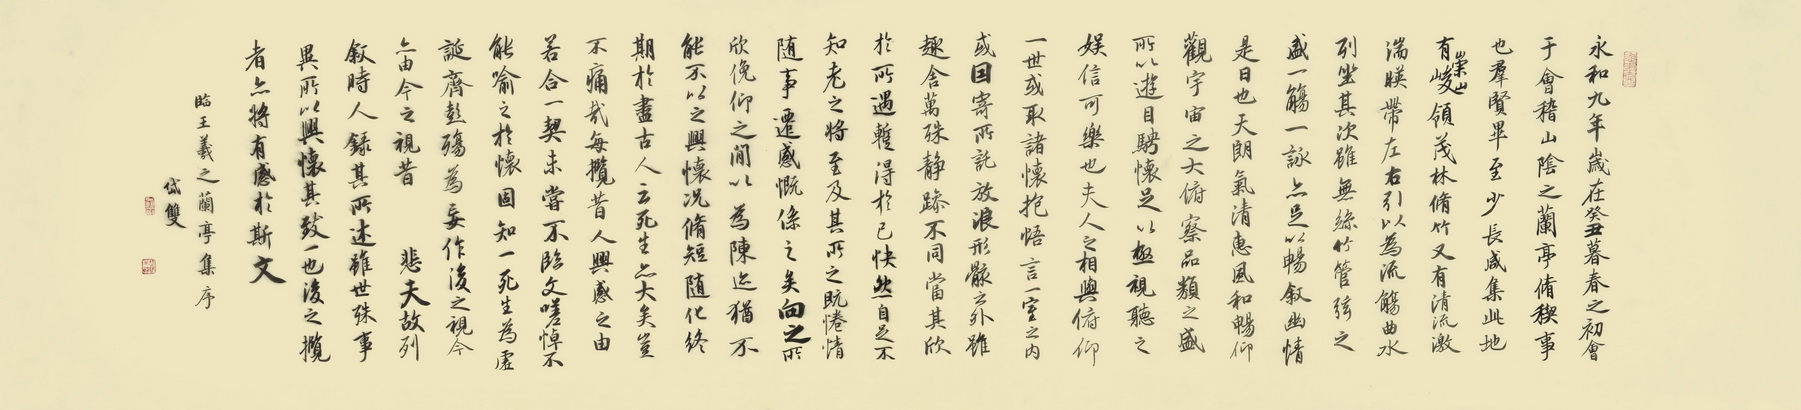 永和九年歲在癸丑暮春之初會
于會稽山陰之蘭亭脩稧事
也羣賢畢至少長咸集此地
有崇山峻領茂林脩竹又有清流激
湍暎帶左右引以為流觴曲水
列坐其次雖無絲竹管弦之
盛一觴一詠亦足以暢敘幽情
是日也天朗氣清惠風和暢仰
觀宇宙之大俯察品類之盛
所以遊目騁懷足以極視聽之
娛信可樂也夫人之相與俯仰
一世或取諸懷抱悟言一室之內
或因寄所託放浪形骸之外雖
趣舍萬殊靜躁不同當其欣
於所遇暫得於己快然自足不
知老之將至及其所之既惓情
隨事遷感慨係之矣向之所
欣俛仰之閒以為陳迹猶不
能不以之興懷況脩短隨化終
期於盡古人云死生亦大矣豈
不痛哉每攬昔人興感之由
若合一契未嘗不臨文嗟悼不
能喻之於懷固知一死生為虛
誕齊彭殤為妄作後之視今
亦由今之視昔 悲夫故列
敘時人錄其所述雖世殊事
異所以興懷其致一也後之攬
者亦將有感於斯文
臨王羲之蘭亭集序
岱雙